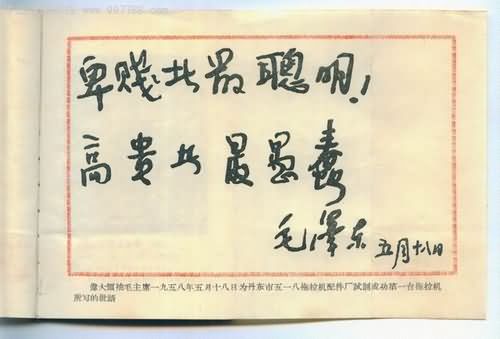 卑贱者最聪明！
高贵者最愚蠢
毛泽东 五月十八日
偉大領袖毛主席一九五八年五月十八日为丹东市五一八拖拉机配件厂試制成功第一台拖拉机
所写的批語